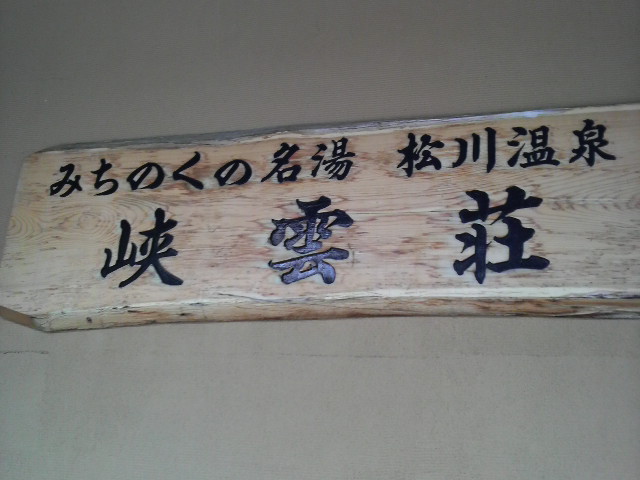 みちのくの名湯 松川温泉
峡雲荘